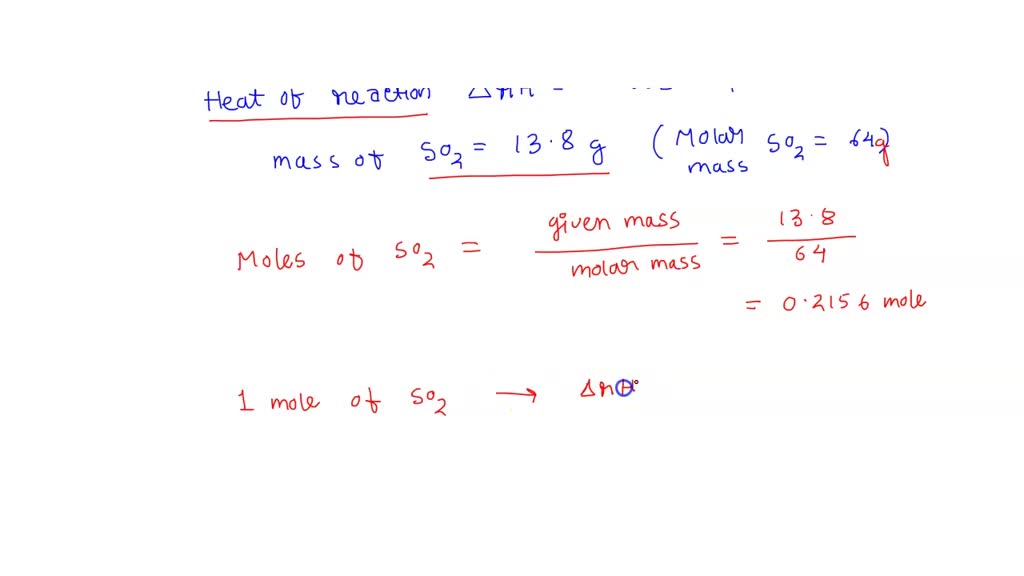 Heat of reaction
mass of SO2 = 13.8 g (Molar mass SO2 = 64g)
Moles of SO2 = given mass / molar mass = 13.8 / 64
= 0.2156 mole
1 mole of SO2 → ΔrH°